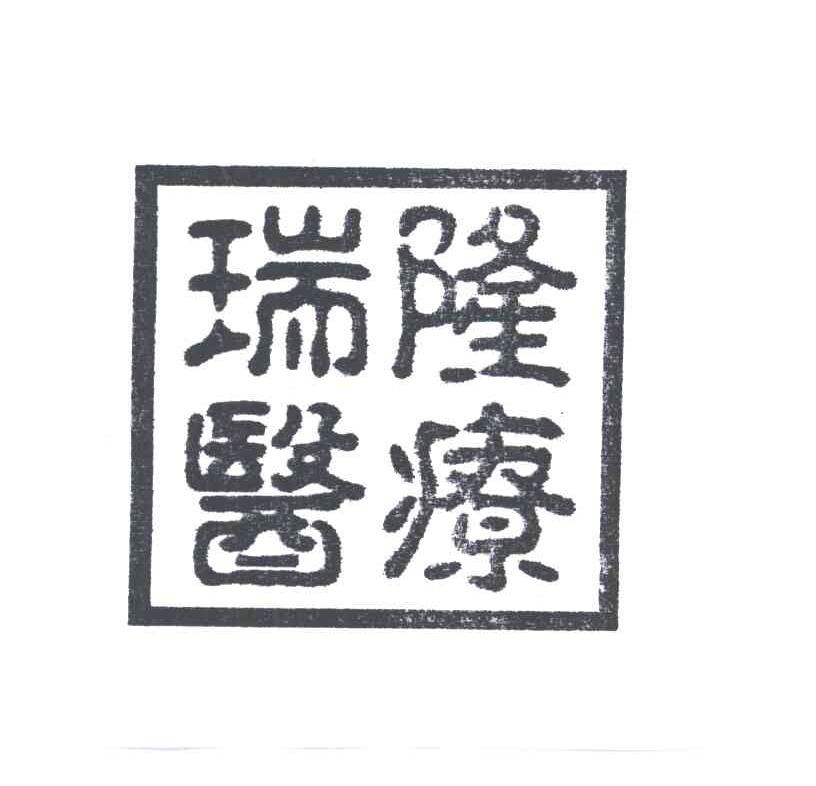 瑞隆
醫療